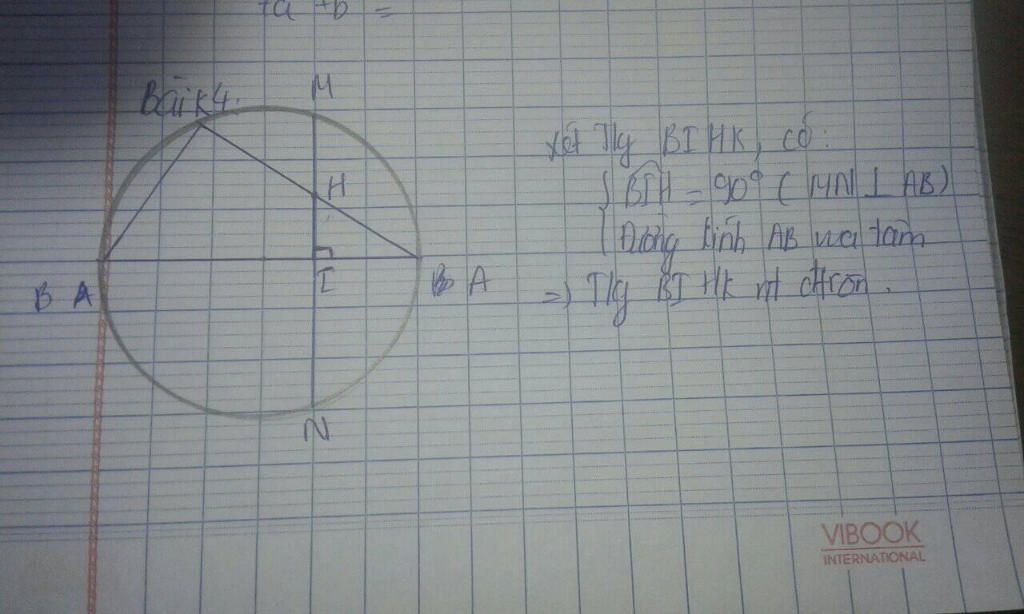 +a +b =
Bài 4:
K
M
H
I
B A
B A
N
Xét Tlg BIHK, có:
{ BIH = 90° ( MN ⊥ AB)
Đường kính AB
=) Tlg BIHK nt
VIBOOK
INTERNATIONAL